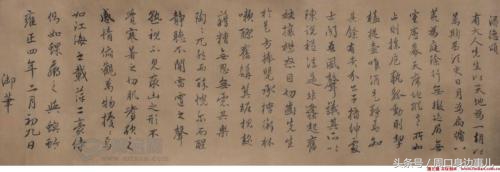 酒德頌
有大人先生以天地為一朝以
萬期為須臾日月為扃牖八
荒為庭除行無轍跡居無
室廬幕天席地縱意所如
止則操卮執觚動則挈
榼提壺唯酒是務焉知
其餘有貴介公子搢紳處
士聞吾風聲議其所以
陳說禮法是非鋒起奮
袂攘襟怒目切齒先生
於是方捧甖承槽銜杯
漱醪奮髯踑踞枕麴
藉糟無思無慮其樂
陶陶兀然而醉恍爾而醒
靜聽不聞雷霆之聲
熟視不見泰山之形不
覺寒暑之切肌嗜欲之
感情俯觀萬物擾擾焉
如江海之載浮萍二豪侍
側焉如蜾蠃之與螟蛉
雍正四年二月初九日
御筆
头条号/周口身边事儿